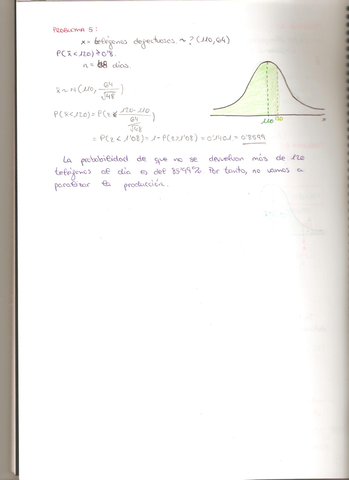 PROBLEMA 5:
x = teléfonos defectuosos ~ ? (110, 64)
P(x̄ < 120) > 0'8.
n = 48 días.
x̄ ~ N(110, 64/√48)
P(x̄ < 120) = P(z < 120-110 / 64/√48)
= P(z < 1'08) = 1 - P(z > 1'08) = 1 - 0'1401 = 0'8599
110 120 x
La probabilidad de que no se devuelvan más de 120
teléfonos al día es del 85'99% Por tanto, no vamos a
paralizar la producción.